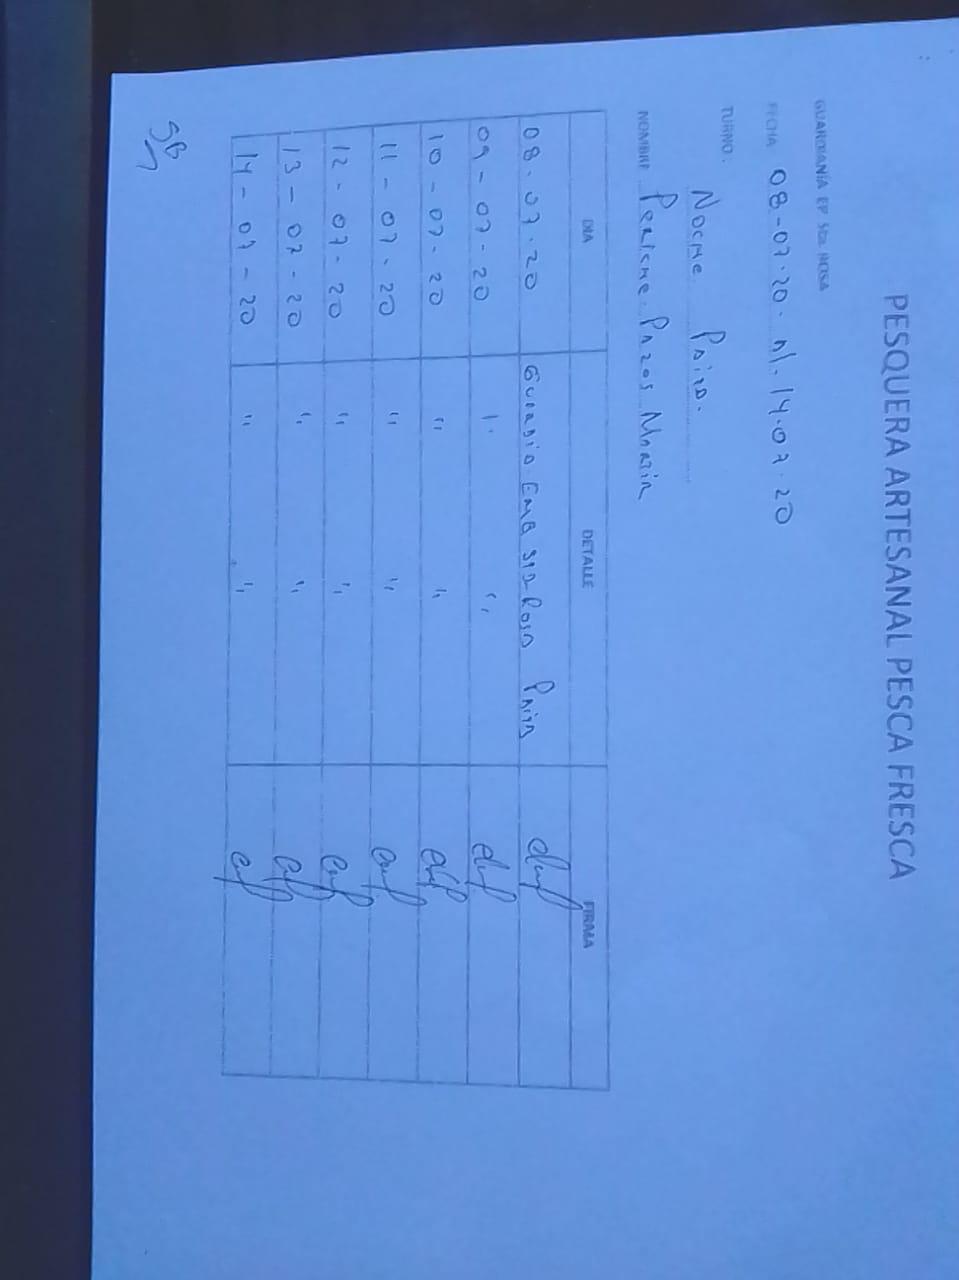 PESQUERA ARTESANAL PESCA FRESCA
GUARDIANÍA EP Sta ROSA
FECHA 08-07-20. Al. 14-07-20
TURNO.
Noche Paita.
NOMBRE Periche Pazos Martin
DIA DETALLE FIRMA
08-07-20 Guardia Emb Sta Rosa Paita
09-07-20 " "
10-07-20 " "
11-07-20 " "
12-07-20 " "
13-07-20 " "
14-07-20 " "